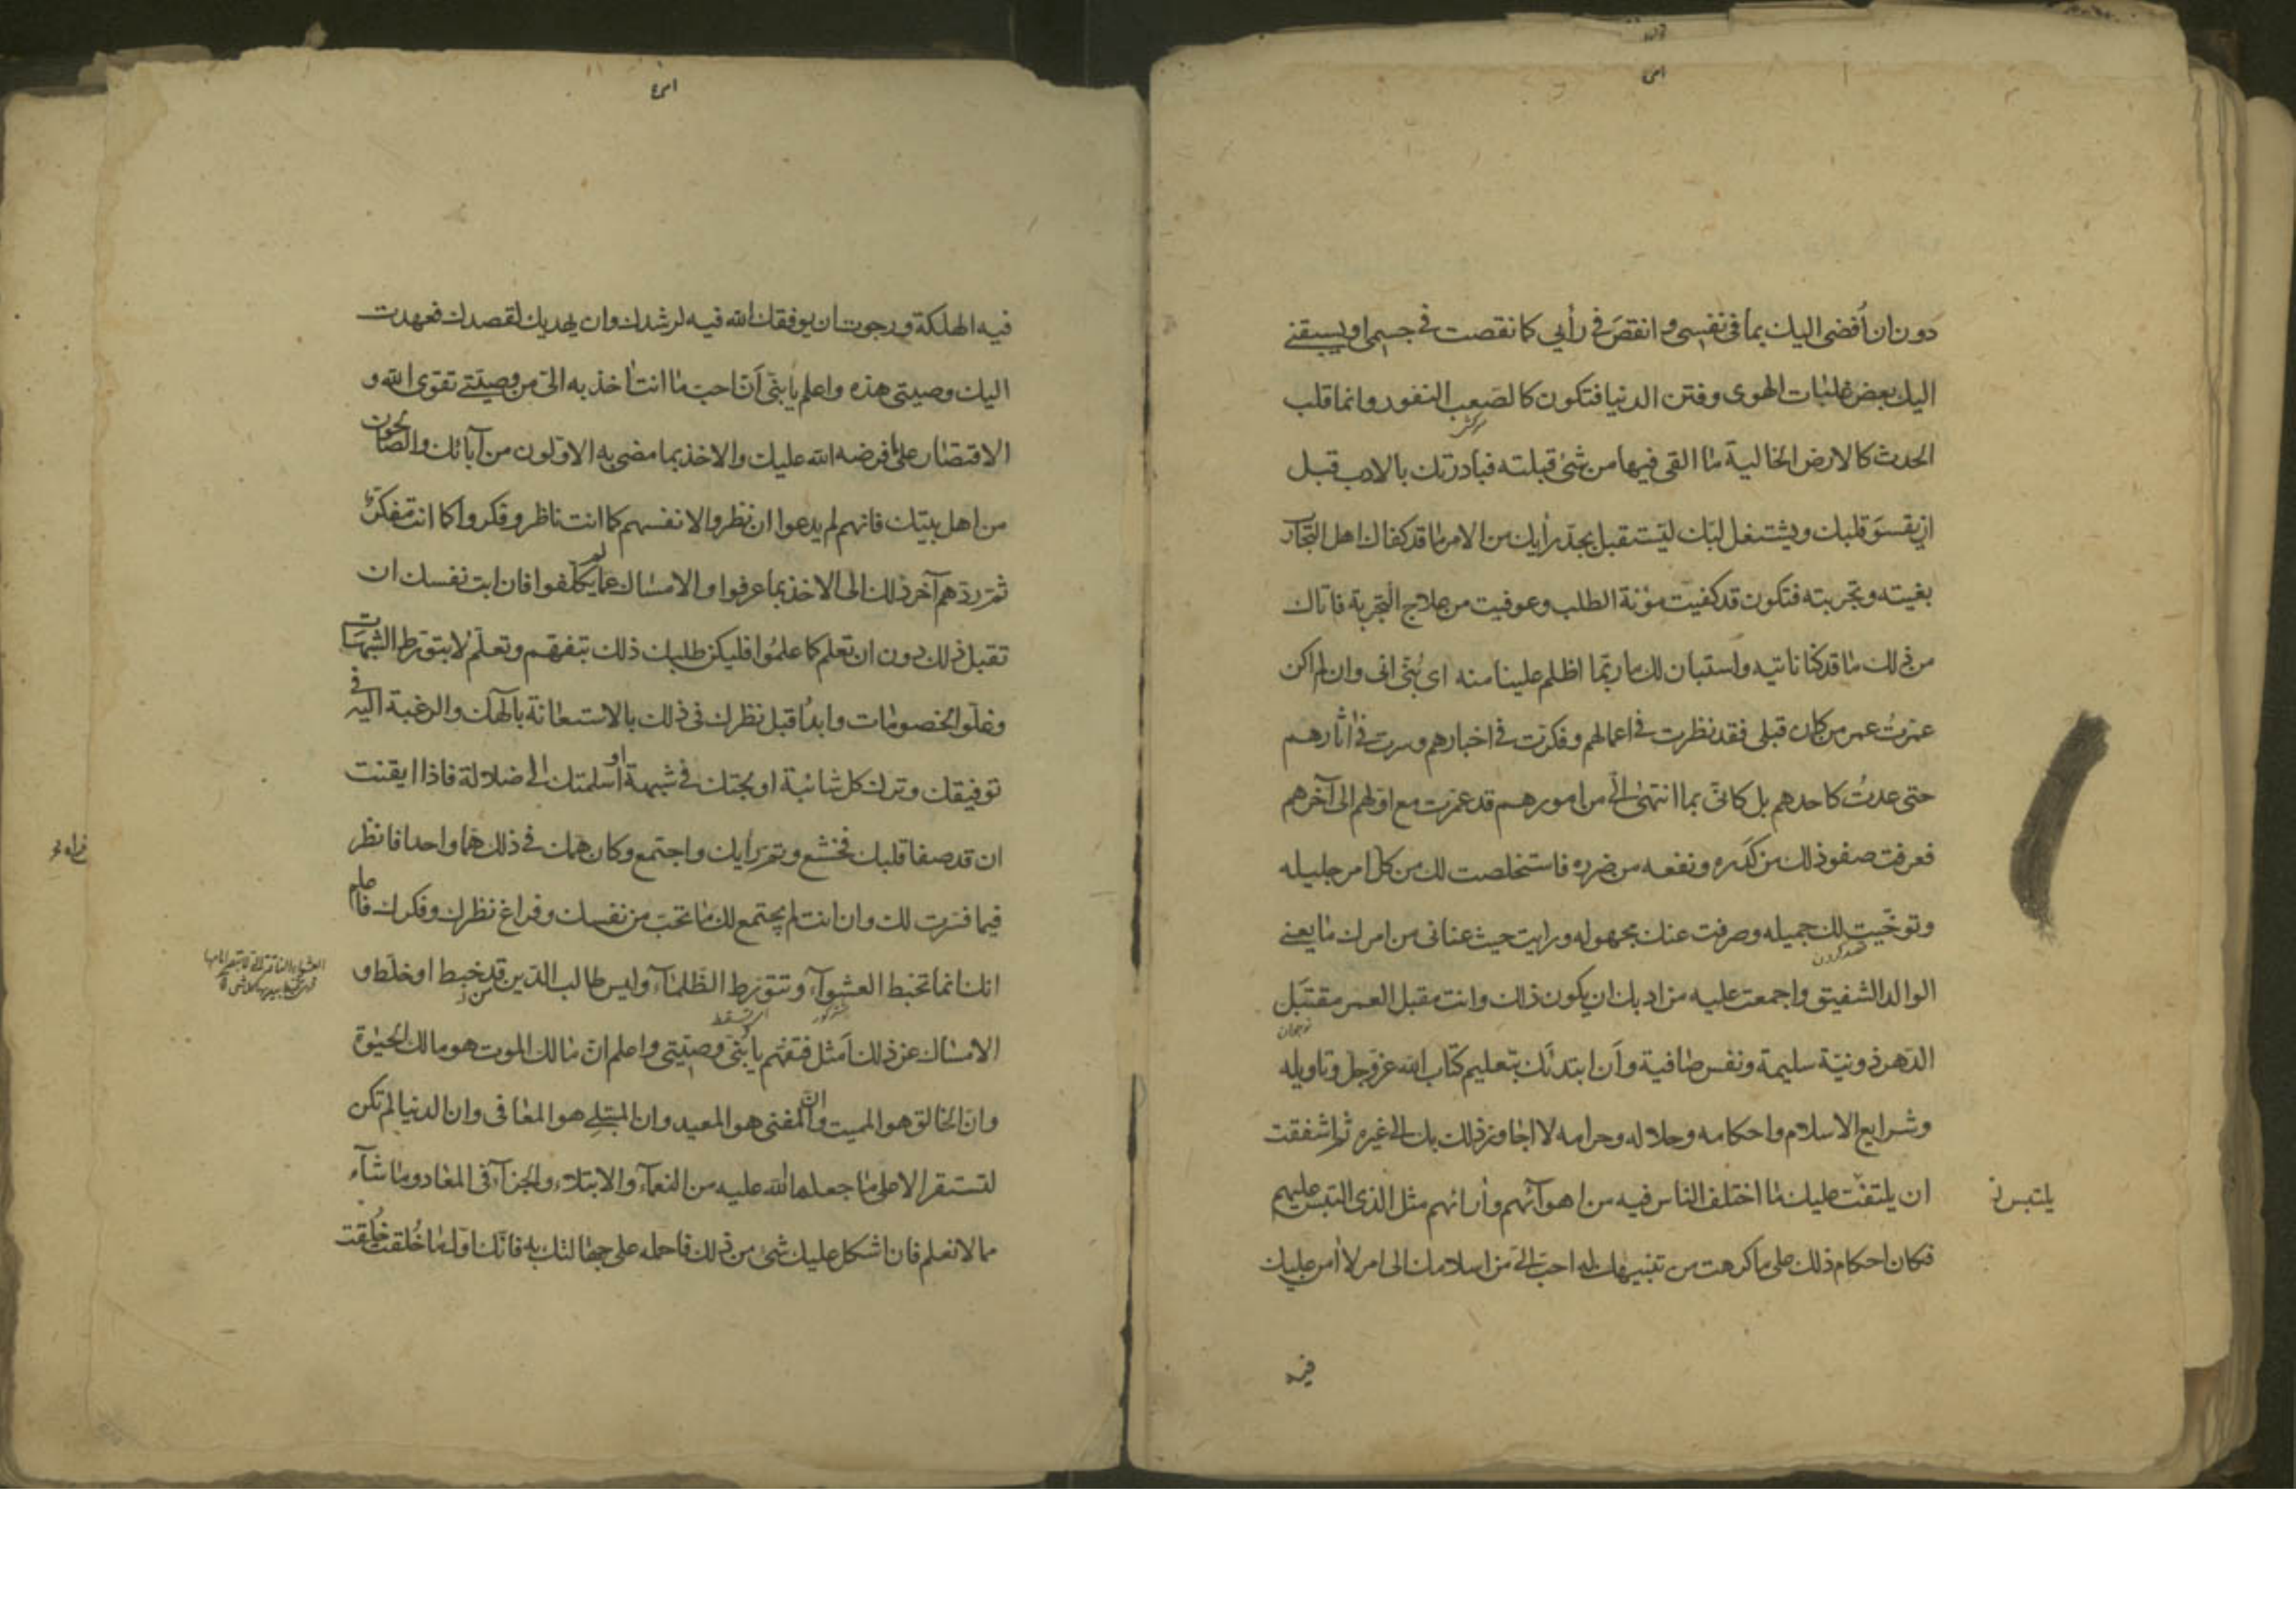 دون ان اُفضی الیك بما فی نفسی و انقصَ فی رأیی كما نقصت فی جسمی او یسبقنی
الیك بعض غلبات الهوی و فتن الدنیا فتكون كالصَعب النفور و انما قلب
سركش
الحدث كالارض الخالیة ما القی فیها من شئ قبلته فبادرتك بالادب قبل
ان یقسوَ قلبك و یشتغل لبّك لتستقبل بجدّ رأیك من الامر ما قد كفاك اهل التجارب
بغیته و تجربته فتكون قد كفیت مؤنة الطلب و عوفیت من علاج التجربة فاتاك
من ذلك ما قد كنا ناتیه و استبان لك ما ربّما اظلم علینا منه ای بُنَیّ انی و ان لم اكن
عمّرتُ عمر من كان قبلی فقد نظرت فی اعمالهم و فكرت فی اخبارهم و سرت فی اثارهم
حتی عدتُ كاحدهم بل كانّی بما انتهیٰ الیّ من امورهم قد عمّرت مع اولهم الی آخرهم
فعرفت صفو ذلك من كَدَره و نفعه من ضرره فاستخلصت لك من كل امر جلیله
و توخّیت لك جمیله و صرفت عنك مجهوله و رایت حیث عنانی من امرك ما یعنی
قصد كردن
الوالد الشفیق و اجمعت علیه من ادبك ان یكون ذلك و انت مقبل العمر مقتبَل
نوجوان
الدّهر ذو نیّة سلیمة و نفس صافیة و أن ابتدئك بتعلیم كتاب الله عزّ و جل و تاویله
و شرایع الاسلام و احكامه و حلاله و حرامه لا اجاوز ذلك بك الی غیره ثم اشفقت
ان یلتفت علیك ما اختلف الناس فیه من اهوآئهم و أرائهم مثل الذی التبس علیهم
یلتبس ن
فكان احكام ذلك علی ما كرهت من تنبیهك له احبّ الیّ من اسلامك الی امر لا أمن علیك
فیه
فیه الهلكة و رجوت ان یوفقك الله فیه لرشدك و ان یهدیك لقصدك فعهدت
الیك وصیتی هذه و اعلم یا بنیّ أنّ احب ما انت اٰخذ به الیّ من وصیّتی تقوی الله و
الاقتصار علی ما فرضه الله علیك و الاخذ بما مضی به الاوّلون من آبائك و الصالحون
من اهل بیتك فانهم لم یدعوا ان نظروا لانفسهم كما انت ناظر و فكروا كما انت مفكّر
ثم ردّهم آخر ذلك الی الاخذ بما عرفوا و الامساك عما لم یكلّفوا فان ابت نفسك ان
تقبل ذلك دون ان تعلم كما علمُوا فلیكن طلبك ذلك بتفهّم و تعلّم لا بتورّط الشبهات
و غلوّ الخصومات و ابدأ قبل نظرك فی ذلك بالاستعانة بالهك و الرغبة الیه فی
توفیقك و ترك كل شائبة اولجتك فی شبهة او اسلمتك الی ضلالة فاذا ایقنت
ان قد صفا قلبك فخشع و تمّ رایك و اجتمع و كان همّك فی ذلك همّا واحدا فانظر
فیما فسّرت لك و ان انت لم یجتمع لك ما تحبّ من نفسك و فراغ نظرك و فكرك فاعلم
انك انما تخبط العشوآء و تتورّط الظّلمآء و لیس طالب الدّین من خبط او خلط و
الامساك عن ذلك اَمثل فتفهّم یا بُنیّ وصیّتی و اعلم انّ مالك الموت هو مالك الحیوٰة
و انّ الخالق هو الممیت و انّ المفنی هو المعید و ان المبتلی هو المعافی و ان الدنیا لم تكن
لتستقر الا علی ما جعلها الله علیه من النعمآء و الابتلاء و الجزآء فی المعاد و ما شآء
مما لا تعلم فان اشكل علیك شئ من ذلك فاحمله علی جهالتك به فانّك اوّل ما خُلقت خُلِقت